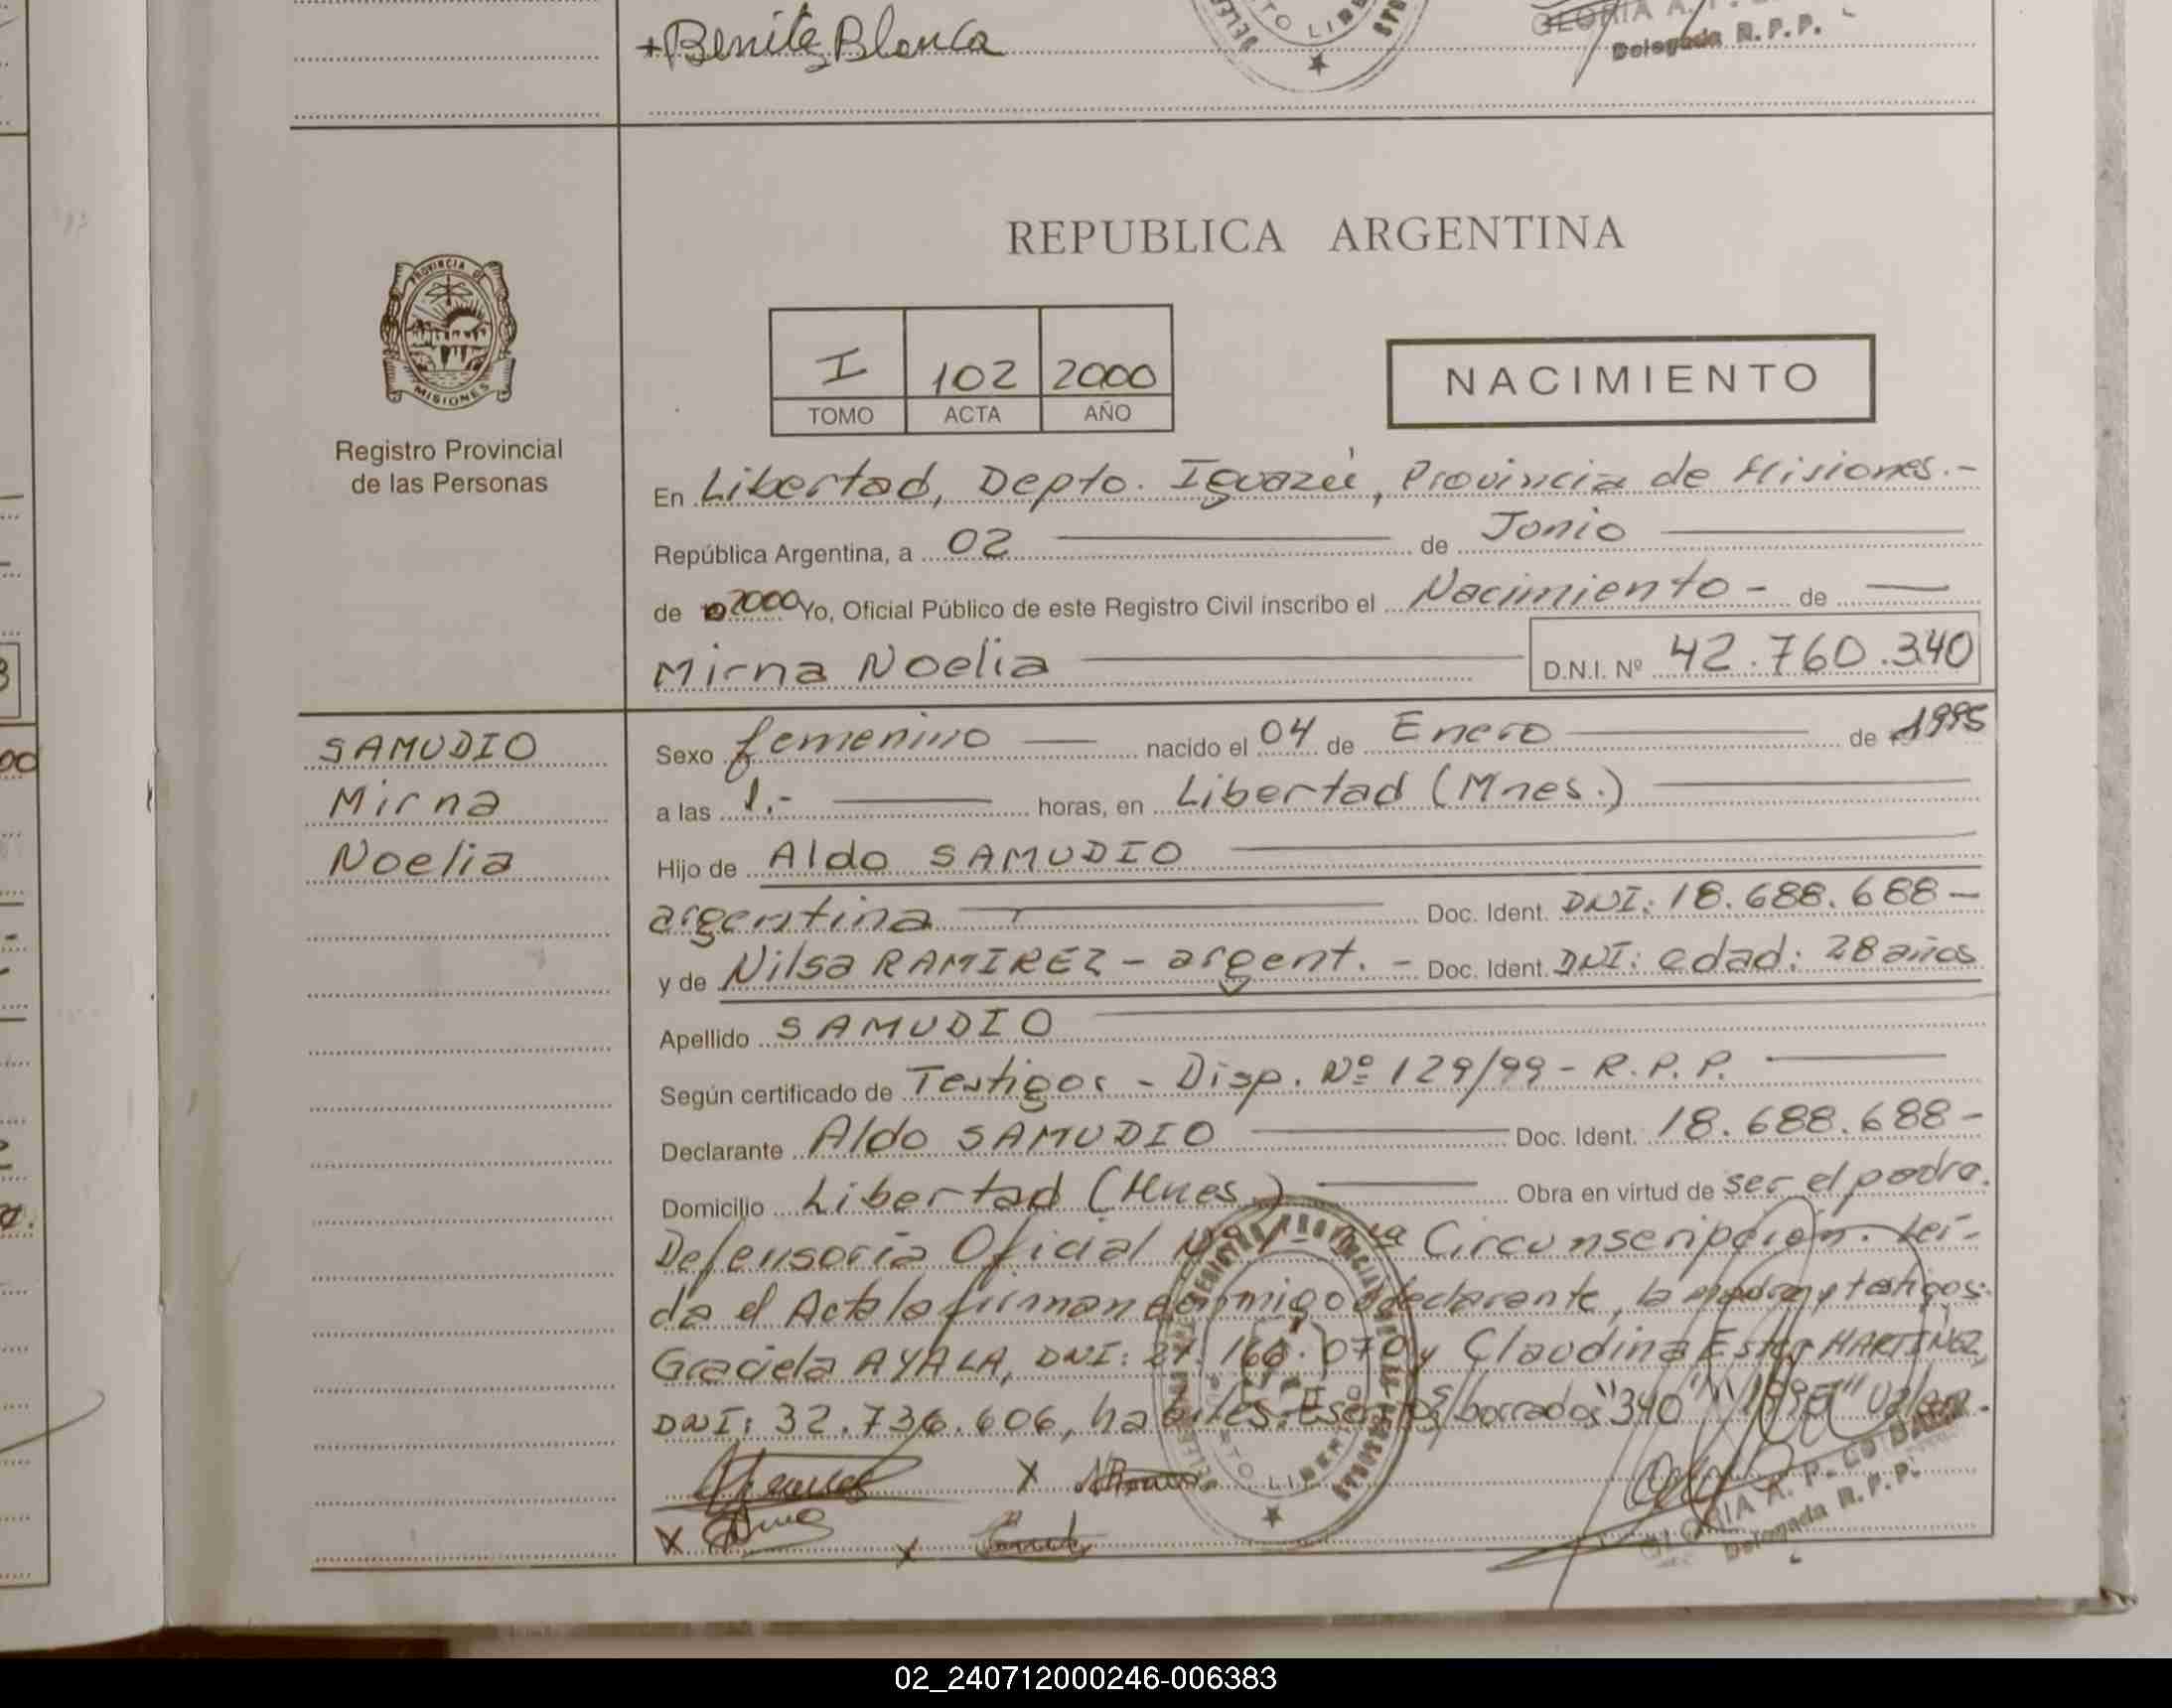 +Benitez Blanca
TO LIBE
GLORIA A. P.
Delegada R.P.P.
REPUBLICA ARGENTINA
PROVINCIA DE
MISIONES
Registro Provincial
de las Personas
I 102 2000
TOMO ACTA AÑO
NACIMIENTO
En Libertad, Depto. Iguazú, Provincia de Misiones.-
República Argentina, a 02 de Junio
de 2000 Yo, Oficial Público de este Registro Civil inscribo el Nacimiento - de
Mirna Noelia D.N.I. Nº 42.760.340
SAMUDIO
Mirna
Noelia
Sexo femenino nacido el 04 de Enero de 1995
a las 1.- horas, en Libertad (Mnes.)
Hijo de Aldo SAMUDIO
argentina Doc. Ident. DNI: 18.688.688-
y de Nilsa RAMIREZ - argent. - Doc. Ident. DNI: edad: 28 años
Apellido SAMUDIO
Según certificado de Testigos - Disp. Nº 129/99 - R.P.P.
Declarante Aldo SAMUDIO Doc. Ident. 18.688.688-
Domicilio Libertad (Mnes.) Obra en virtud de ser el padre.
Defensoría Oficial Circunscripción. Leí-
da el Acta la firman conmigo declarante, la madre y testigos:
Graciela AYALA, DNI: 27.166.070 y Claudina Ester MARTINEZ,
DNI: 32.736.606, hábiles. borrados "340" Valen.
GLORIA A. P.
Delegada R.P.P.
02_240712000246-006383